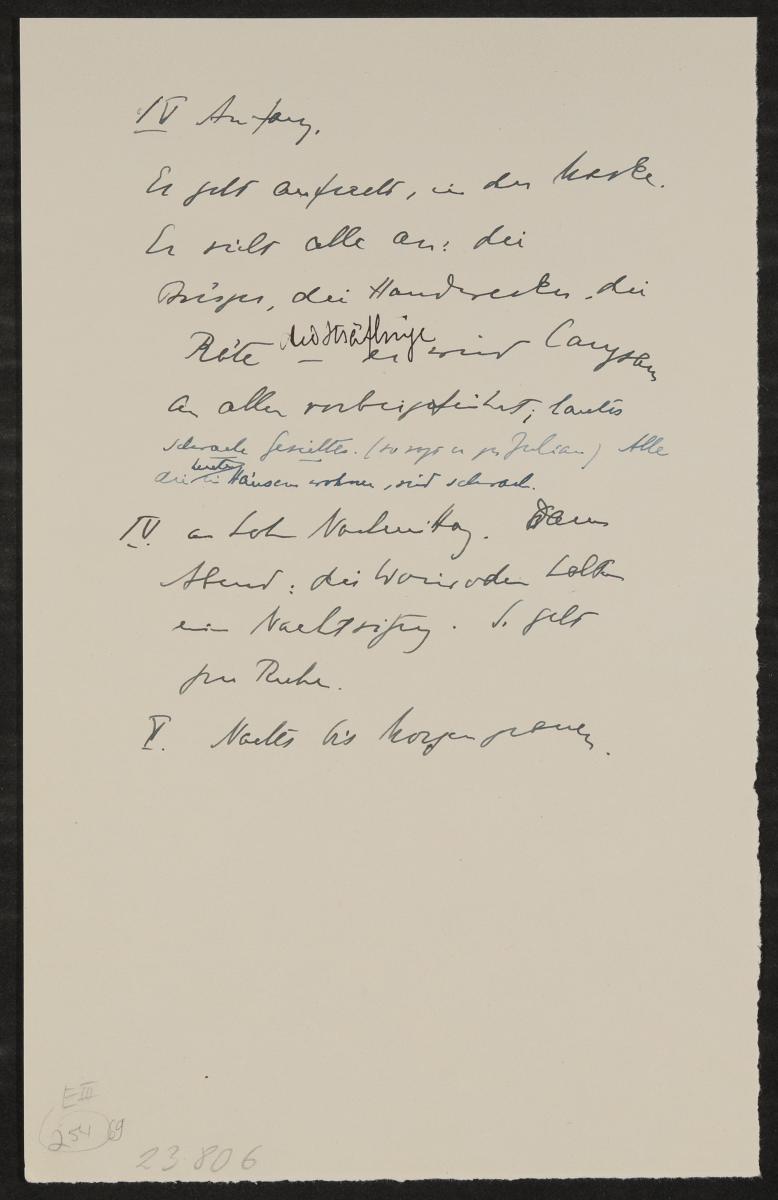 IV Anfang.
Er geht aufrecht, in der Maske.
Er sieht alle an: die
Bürger, die Handwerker, die
Räte die Sträflinge – er wird langsam
an allen vorbeigeführt; lauter
schwache Gesichter. (so sagt er zu Julian) Alle
die in Häusern wohnen, sind schwach.
IV. am Nachmittag. Dann
Abend: die Woiwoden halten
eine Nachtsitzung. S. geht
zur Ruhe.
V. Nachts bis Morgengrauen.
E III
254 69
23.806